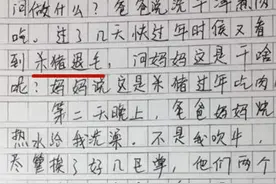 问做什么？爸爸说洗干净
吃。过了几天快过年时候又看
到杀猪退毛，问妈妈这是干啥
呢？妈妈说这是杀猪过年吃肉
第二天晚上，爸爸妈妈烧
热水给我洗澡。不是我吹牛，
尽管挨了好几巴掌，他们两个